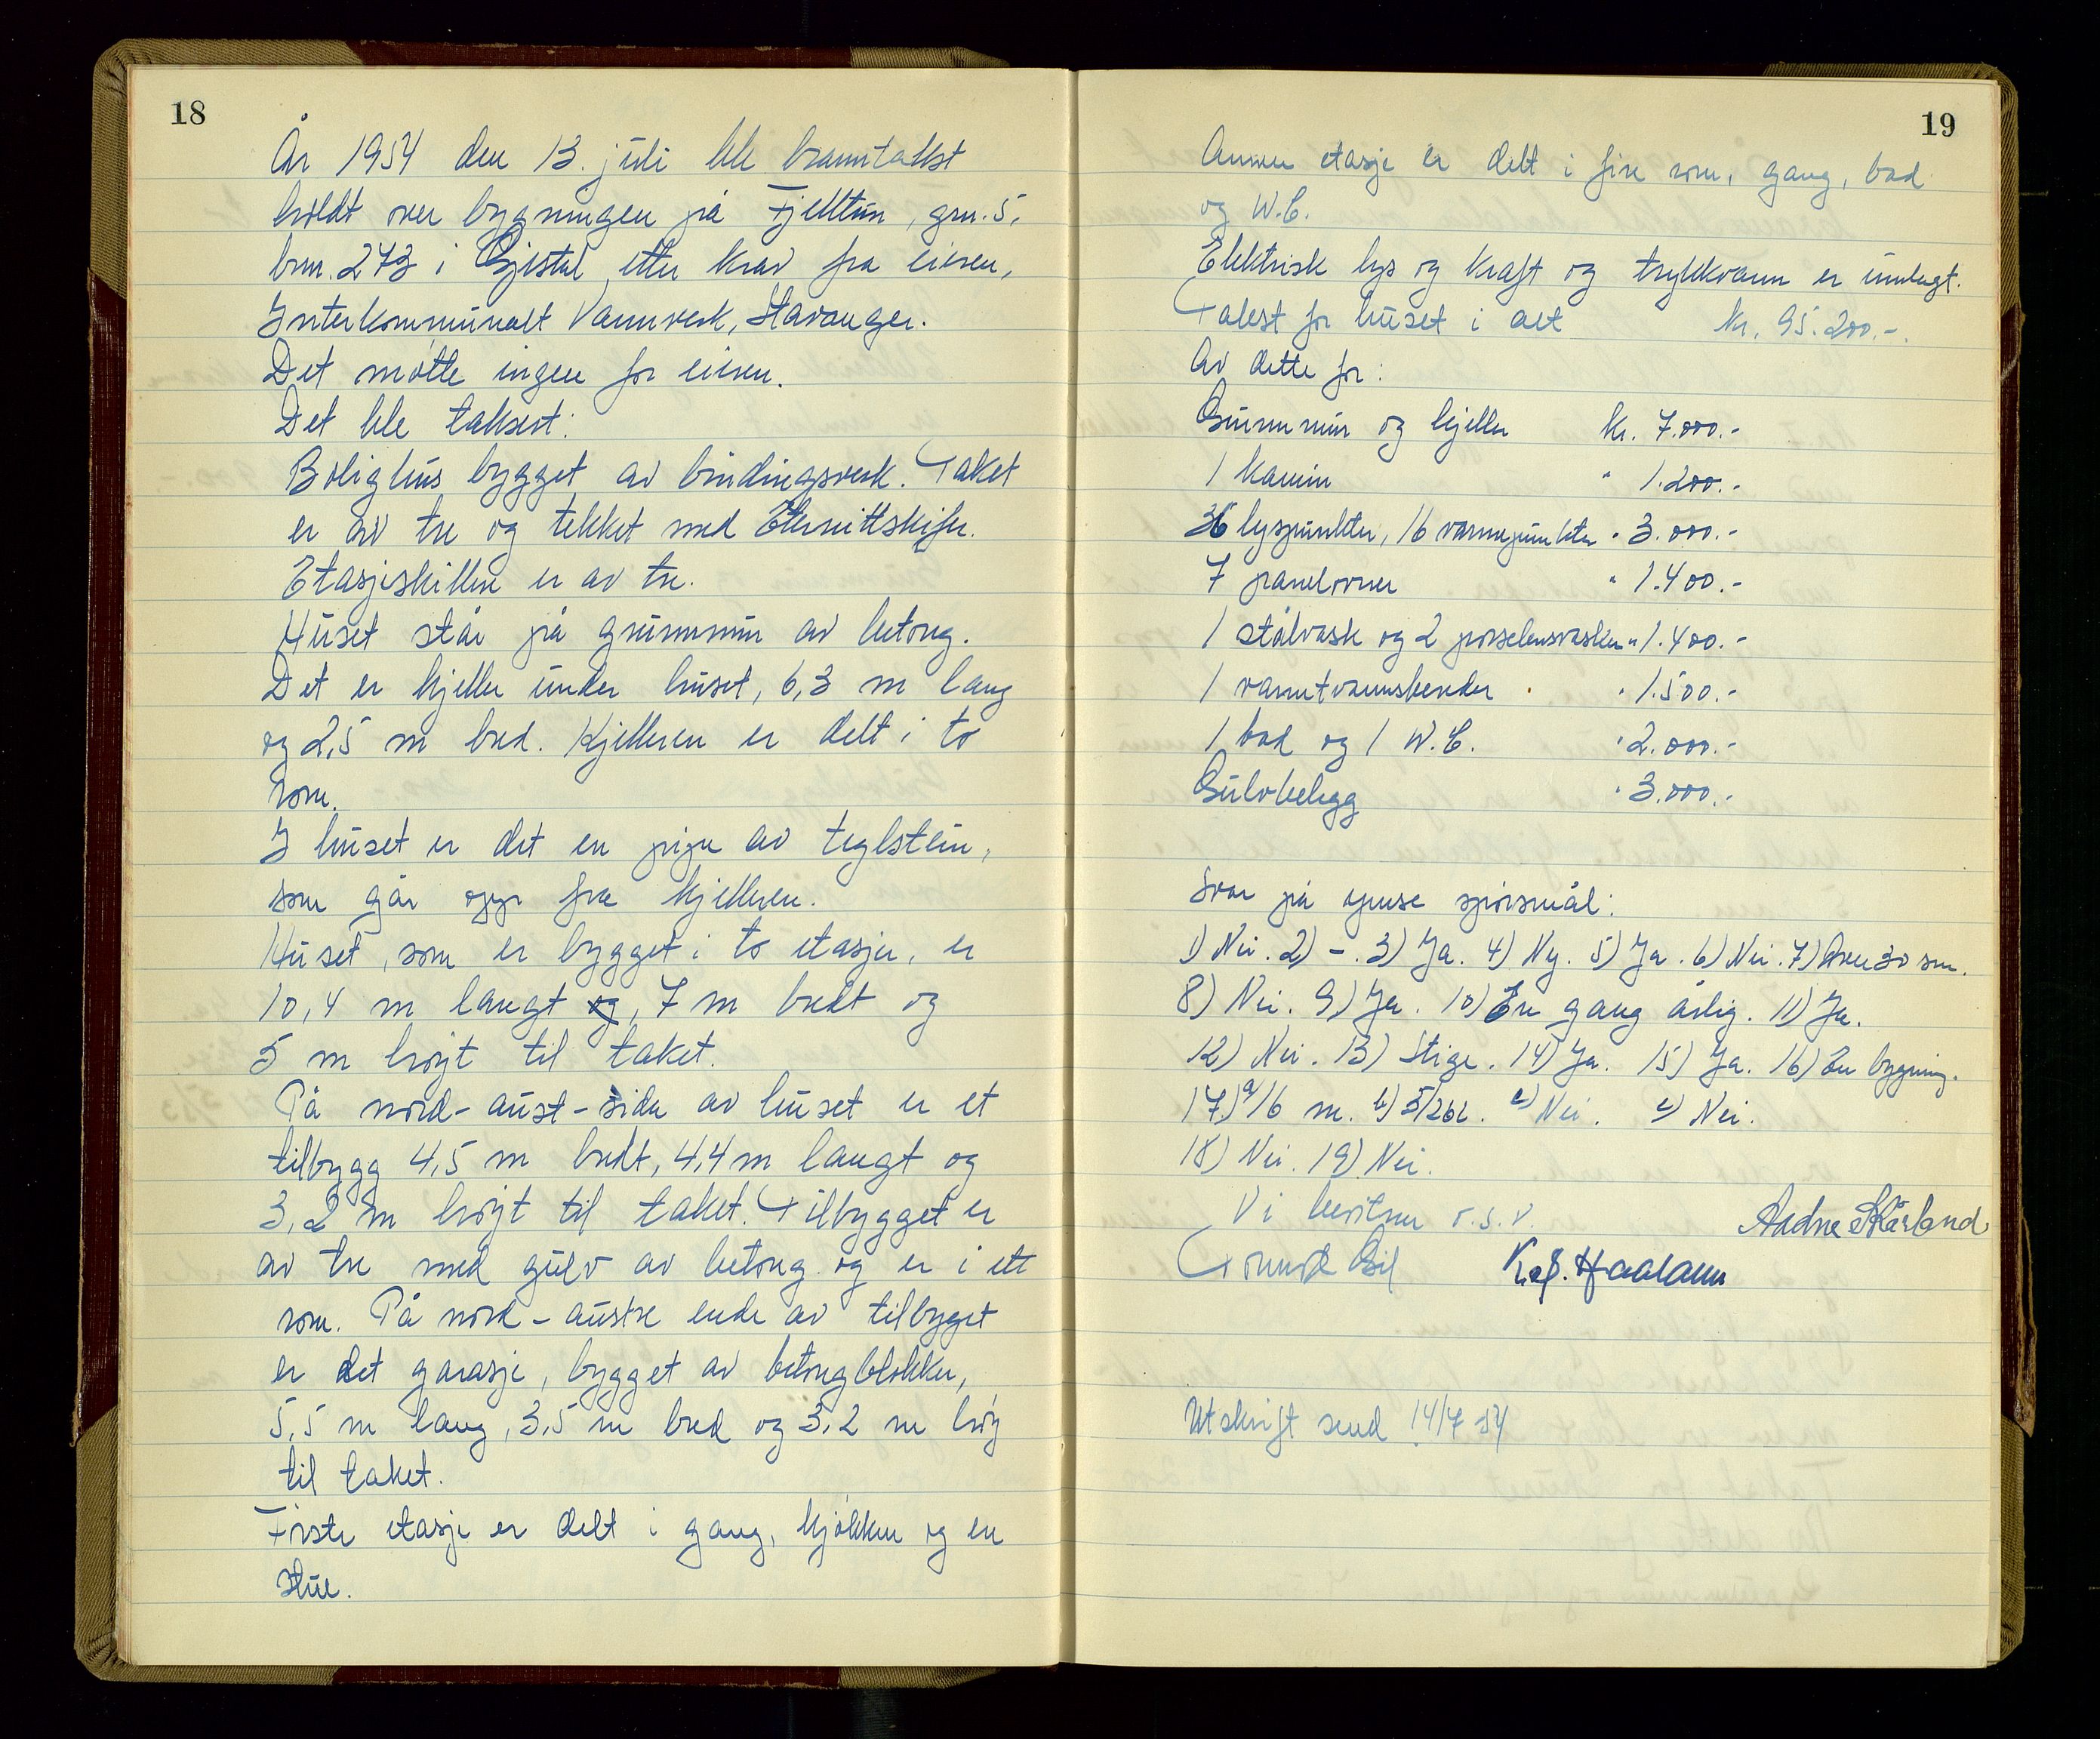 18
År 1954 den 13. juli ble branntakst
holdt over bygningen på Fjelltun, grn. 5,
brn. 273 i Gjestal etter krav fra eieren,
Interkommunalt Vannverk, Stavanger.
Det møtte ingen for eieren.
Det ble taksert:
Bolighus bygget av bindingsverk. Taket
er av tre og tekket med Eternittskifer.
Etasjeskillene er av tre.
Huset står på grunnmur av betong.
Det er kjeller under huset, 6,3 m lang
og 2,5 m bred. Kjelleren er delt i to
rom.
I huset er det en pipe av teglstein,
som går opp fra kjelleren.
Huset, som er bygget i to etasjer, er
10,4 m langt og, 7 m bredt og
5 m høyt til taket.
På nord-aust-sida av huset er et
tilbygg 4,5 m bredt, 4,4 m langt og
3,2 m høyt til taket. Tilbygget er
av tre med gulv av betong og er i ett
rom. På nord-austre ende av tilbyget
er det garasje, bygget av betongblokker,
5,5 m lang, 3,5 m bred og 3,2 m høy
til taket.
Første etasje er delt i gang, kjøkken og en
stue.
19
Annen etasje er delt i fire rom, gang, bad
og W.C.
Elektrisk lys og kraft og trykkvann er innlagt.
Takst for huset i alt Kr. 95.200.-
Av dette for:
Grunnmur og kjeller Kr. 7.000.-
1 kamin " 1.200.-
36 lyspunkter, 16 varmepunkter " 3.000.-
7 panelovner " 1.400.-
1 stålvask og 2 porselensvasker " 1.400.-
1 varmtvannsbereder " 1.500.-
1 bad og 1 W.C. " 2.000.-
Gulvbelegg " 3.000.-
Svar på spørsmål:
1) Nei. 2) -. 3) Ja. 4) Ny. 5) Ja. 6) Nei. 7) Over 30 m.
8) Nei. 9) Ja. 10) En gang årlig. 11) Ja.
12) Nei. 13) Stige. 14) Ja. 15) Ja. 16) En bygning.
17) a) 16 m. b) 5/262. c) Nei. c) Nei.
18) Nei. 19) Nei.
Vi bevitner o.s.v. Aadne Skårland
Trond Gil Haaland
Utskrift send 14/7 54